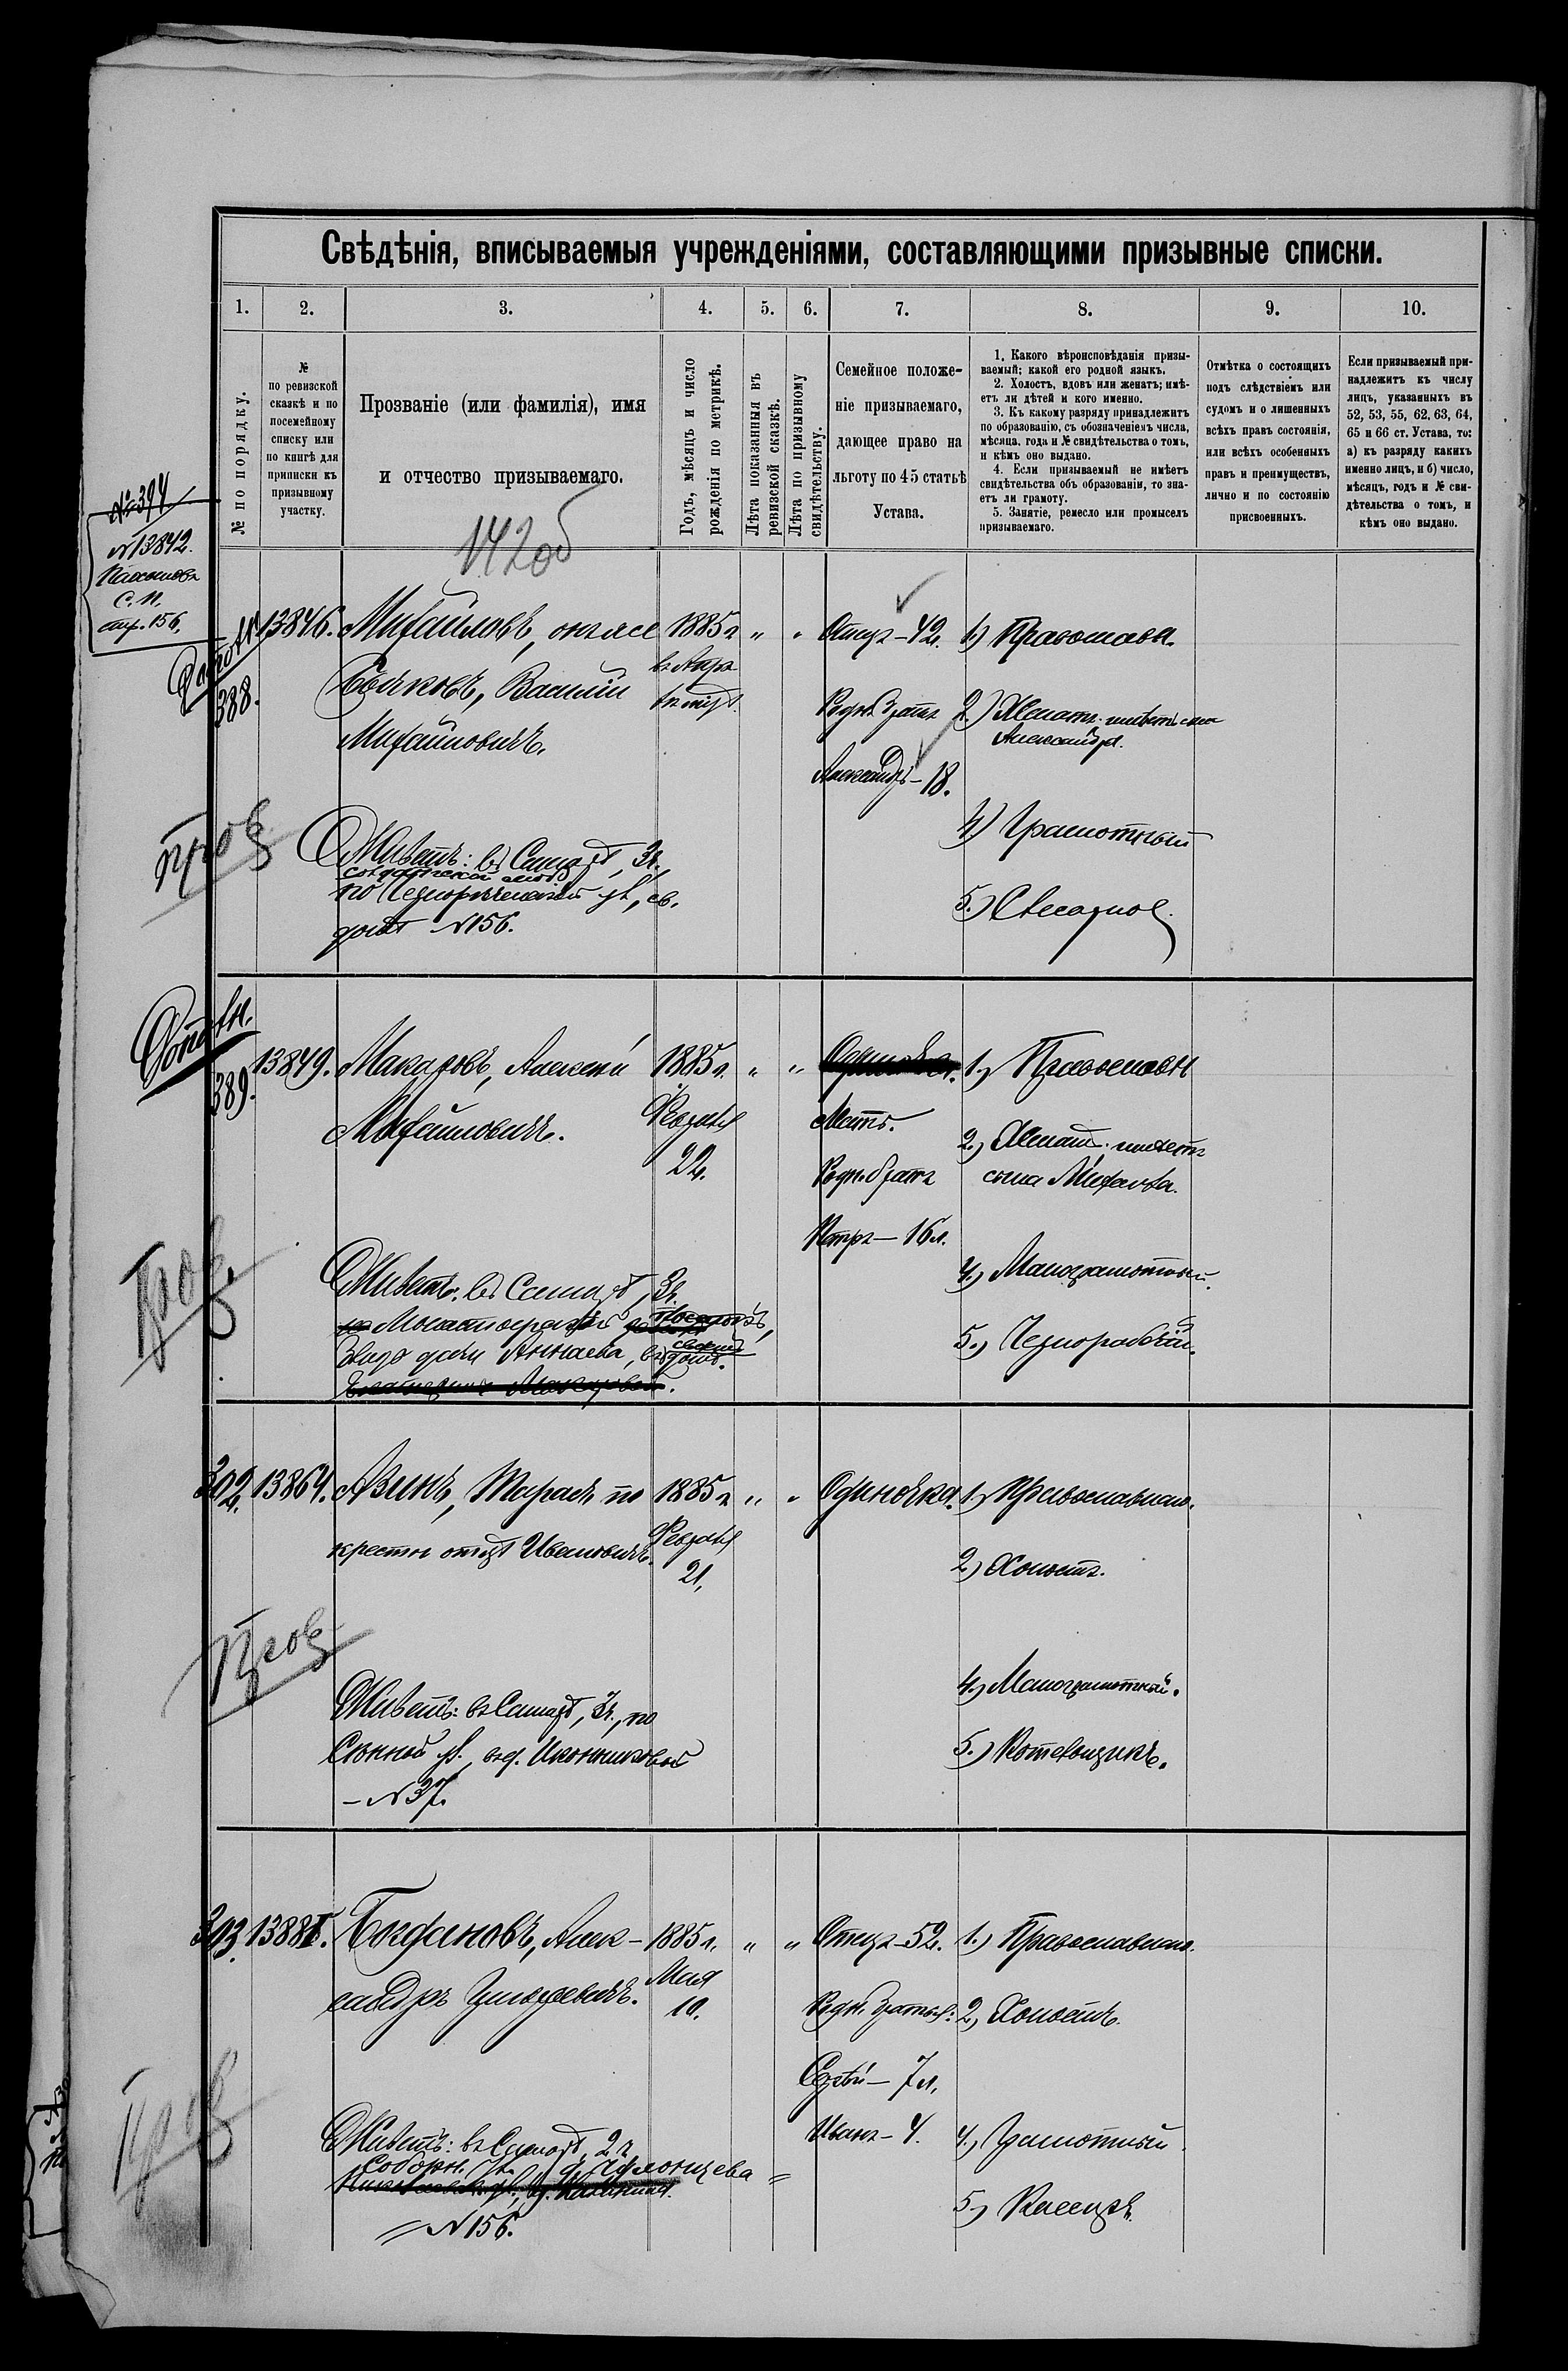 Свѣдѣнія, вписываемыя учрежденіями, составляющими призывные списки.
1. 2. 3. 4. 5. 6. 7. 8. 9. 10.
№ по порядку.
№
по ревизской
сказкѣ и по
посемейному
списку или
по книгѣ для
приписки къ
призывному
участку.
Прозваніе (или фамилія), имя
и отчество призываемаго.
Годъ, мѣсяцъ и число
рожденія по метрикѣ.
Лѣта показанныя въ
ревизской сказкѣ.
Лѣта по призывному
свидѣтельству.
Семейное положе-
ніе призываемаго,
дающее право на
льготу по 45 статьѣ
Устава.
1. Какого вѣроисповѣданія призы-
ваемый; какой его родной языкъ.
2. Холостъ, вдовъ или женатъ; имѣ-
етъ ли дѣтей и кого именно.
3. Къ какому разряду принадлежитъ
по образованію, съ обозначеніемъ числа,
мѣсяца, года и № свидѣтельства о томъ,
и кѣмъ оно выдано.
4. Если призываемый не имѣетъ
свидѣтельства объ образованіи, то зна-
етъ ли грамоту.
5. Занятіе, ремесло или промыселъ
призываемаго.
Отмѣтка о состоящихъ
подъ слѣдствіемъ или
судомъ и о лишенныхъ
всѣхъ правъ состоянія,
или всѣхъ особенныхъ
правъ и преимуществъ,
лично и по состоянію
присвоенныхъ.
Если призываемый при-
надлежитъ къ числу
лицъ, указанныхъ въ
52, 53, 55, 62, 63, 64,
65 и 66 ст. Устава, то:
а) къ разряду какихъ
именно лицъ, и б) число,
мѣсяцъ, годъ и № сви-
дѣтельства о томъ, и
кѣмъ оно выдано.
142об
№ 394
№ 13842.
С. П.
стр. 156.
388.
13846. Михайловъ, онъ же 1885 г. " " Отецъ - 42. 1.) Православн.
Бычковъ, Василій
Михайловичъ.
Родн. братъ
Александръ - 18.
2.) Женатъ; имѣетъ сына
Александра.
4.) Грамотный
5.) Слесарное
пров
Живетъ: въ Самарѣ, 3 ч.
по Чернорѣченской ул., св.
домѣ № 156.
389.
13849. Макаровъ, Алексѣй 1885 г. " " 1.) Православн
Михайловичъ. Февраля
22.
Мать.
Родн. братъ
Петръ - 16 л.
2.) Женатъ; имѣетъ
сына Михаила.
4.) Малограмотный.
5.) Чернорабочій.
Пров.
Живетъ: въ Самарѣ, 3 ч.
Близъ дачи Аннаева, въ своемъ домѣ.
392. 13864. Азинъ, Тарасъ по 1885 г. " " Одиночка. 1.) Православнаго.
крестн. отцѣ Ивановичъ. Февраля
21.
2.) Холостъ.
4.) Малограмотный.
5.) Котельщикъ.
Пров
Живетъ: въ Самарѣ, 3 ч., по
Сѣнной ул., въ д. Иконниковой
- № 37.
393. 13881. Богдановъ, Алек- 1885 г. " " Отецъ - 52. 1.) Православнаго.
сандръ Григорьевичъ. Мая
10.
Родн. братья:
Сергѣй - 7 л.
Иванъ - 4.
2.) Холостъ.
4.) Грамотный
5.) Кассиръ.
Пров
Живетъ: въ Самарѣ, 2 ч.
Соборн. ул.
№ 156.